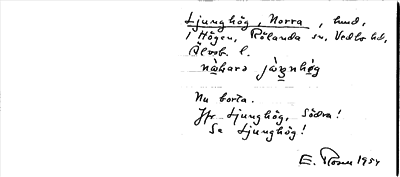 Ljunghög, Norra, hmd,
i Högen, Rölanda sn, Vedbo hd,
Älvsb. l.
nɷ̀harə jɷ̀ŋnhög
Nu borta.
Jfr Ljunghög, Södra!
Se Ljunghög!
E. Rosen 1954